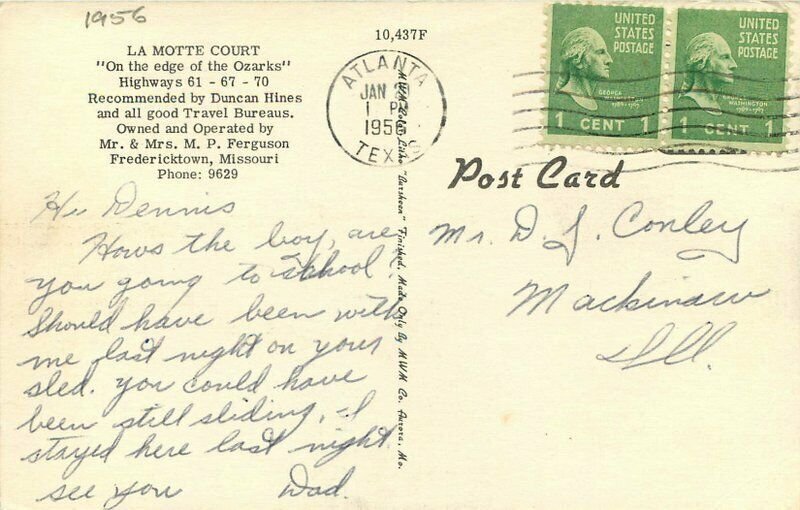 1956
LA MOTTE COURT
"On the edge of the Ozarks"
Highways 61 - 67 - 70
Recommended by Duncan Hines
and all good Travel Bureaus.
Owned and Operated by
Mr. & Mrs. M. P. Ferguson
Fredericktown, Missouri
Phone: 9629
Hi Dennis
Hows the boy, are
you going to school?
Should have been with
me last night on your
sled. You could have
been still sliding, I
stayed here last night.
see you Dad.
10,437F
ATLANTA
JAN
1 P
1956
TEXAS
MWM Color Litho "Darsheen" Finished. Made Only By MWM Co. Aurora, Mo.
UNITED
STATES
POSTAGE
GEORGE
WASHINGTON
1789-1797
1 CENT 1
UNITED
STATES
POSTAGE
GEORGE
WASHINGTON
1789-1797
1 CENT 1
Post Card
Mr. D. J. Conley
Mackinaw
Ill.